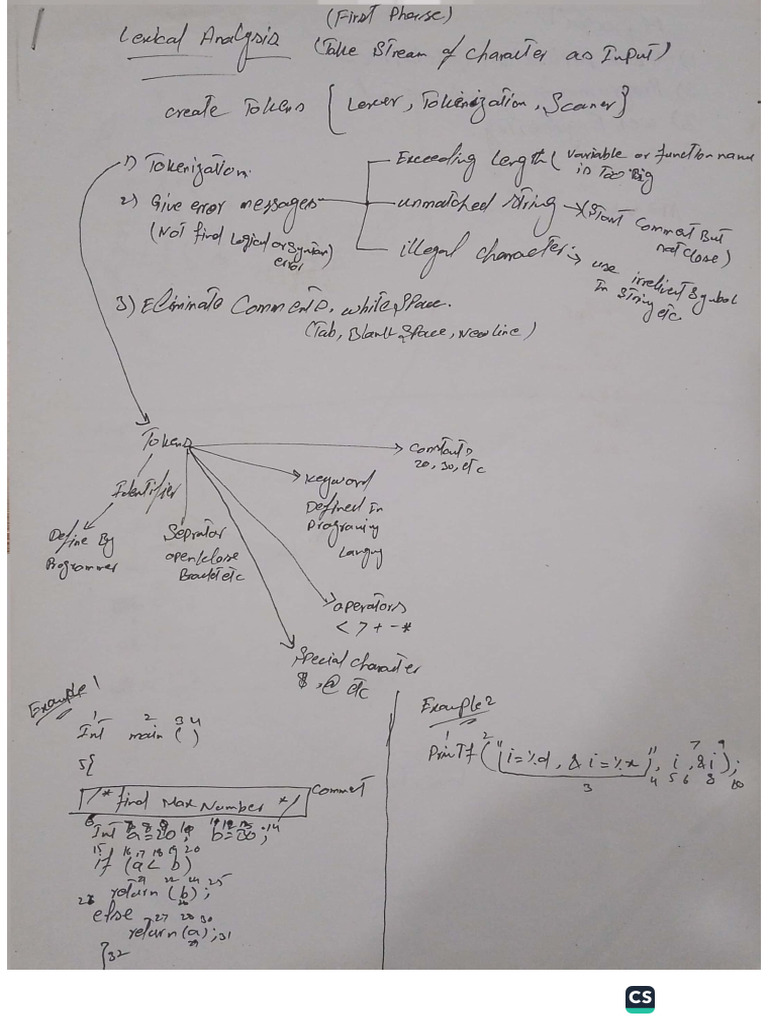 (First Pharse)
Lexical Analysis (Take Stream of character as Input)
create Tokens [Lexer, Tokenization, Scaner}
1) Tokenization.
2) Give error messages
(Not find Logical or Syntax)
error
Exceeding Length (variable or function name
is Too Big
unmatched string → (Start Comment But
not close)
illegal character → use irrelivent Symbol
In String etc
3) Eliminate Comments, white Space.
(Tab, Blank Space, New line)
Tokens
Constants
20, 30, etc
Identifier
Define By
Programmer
Seprator
open/close
Bracket etc
Keyword
Defined In
Programing
Languag
operators
< > + - *
Special character
$, @ etc
Example 1
1 2 3 4
Int main ( )
5{
/* find Max Number */ Comment
6 7 8 9 10 11 12 13 14
Int a=20, b=30;
15 16 17 18 19 20
if (a< b)
21 22 23 24 25
return (b);
26 else
27 28 29 30
return (a);31
}32
Example 2
1 2 7 9
Printf ("i=%d, &i=%x", i, &i);
3 4 5 6 8 10
CS